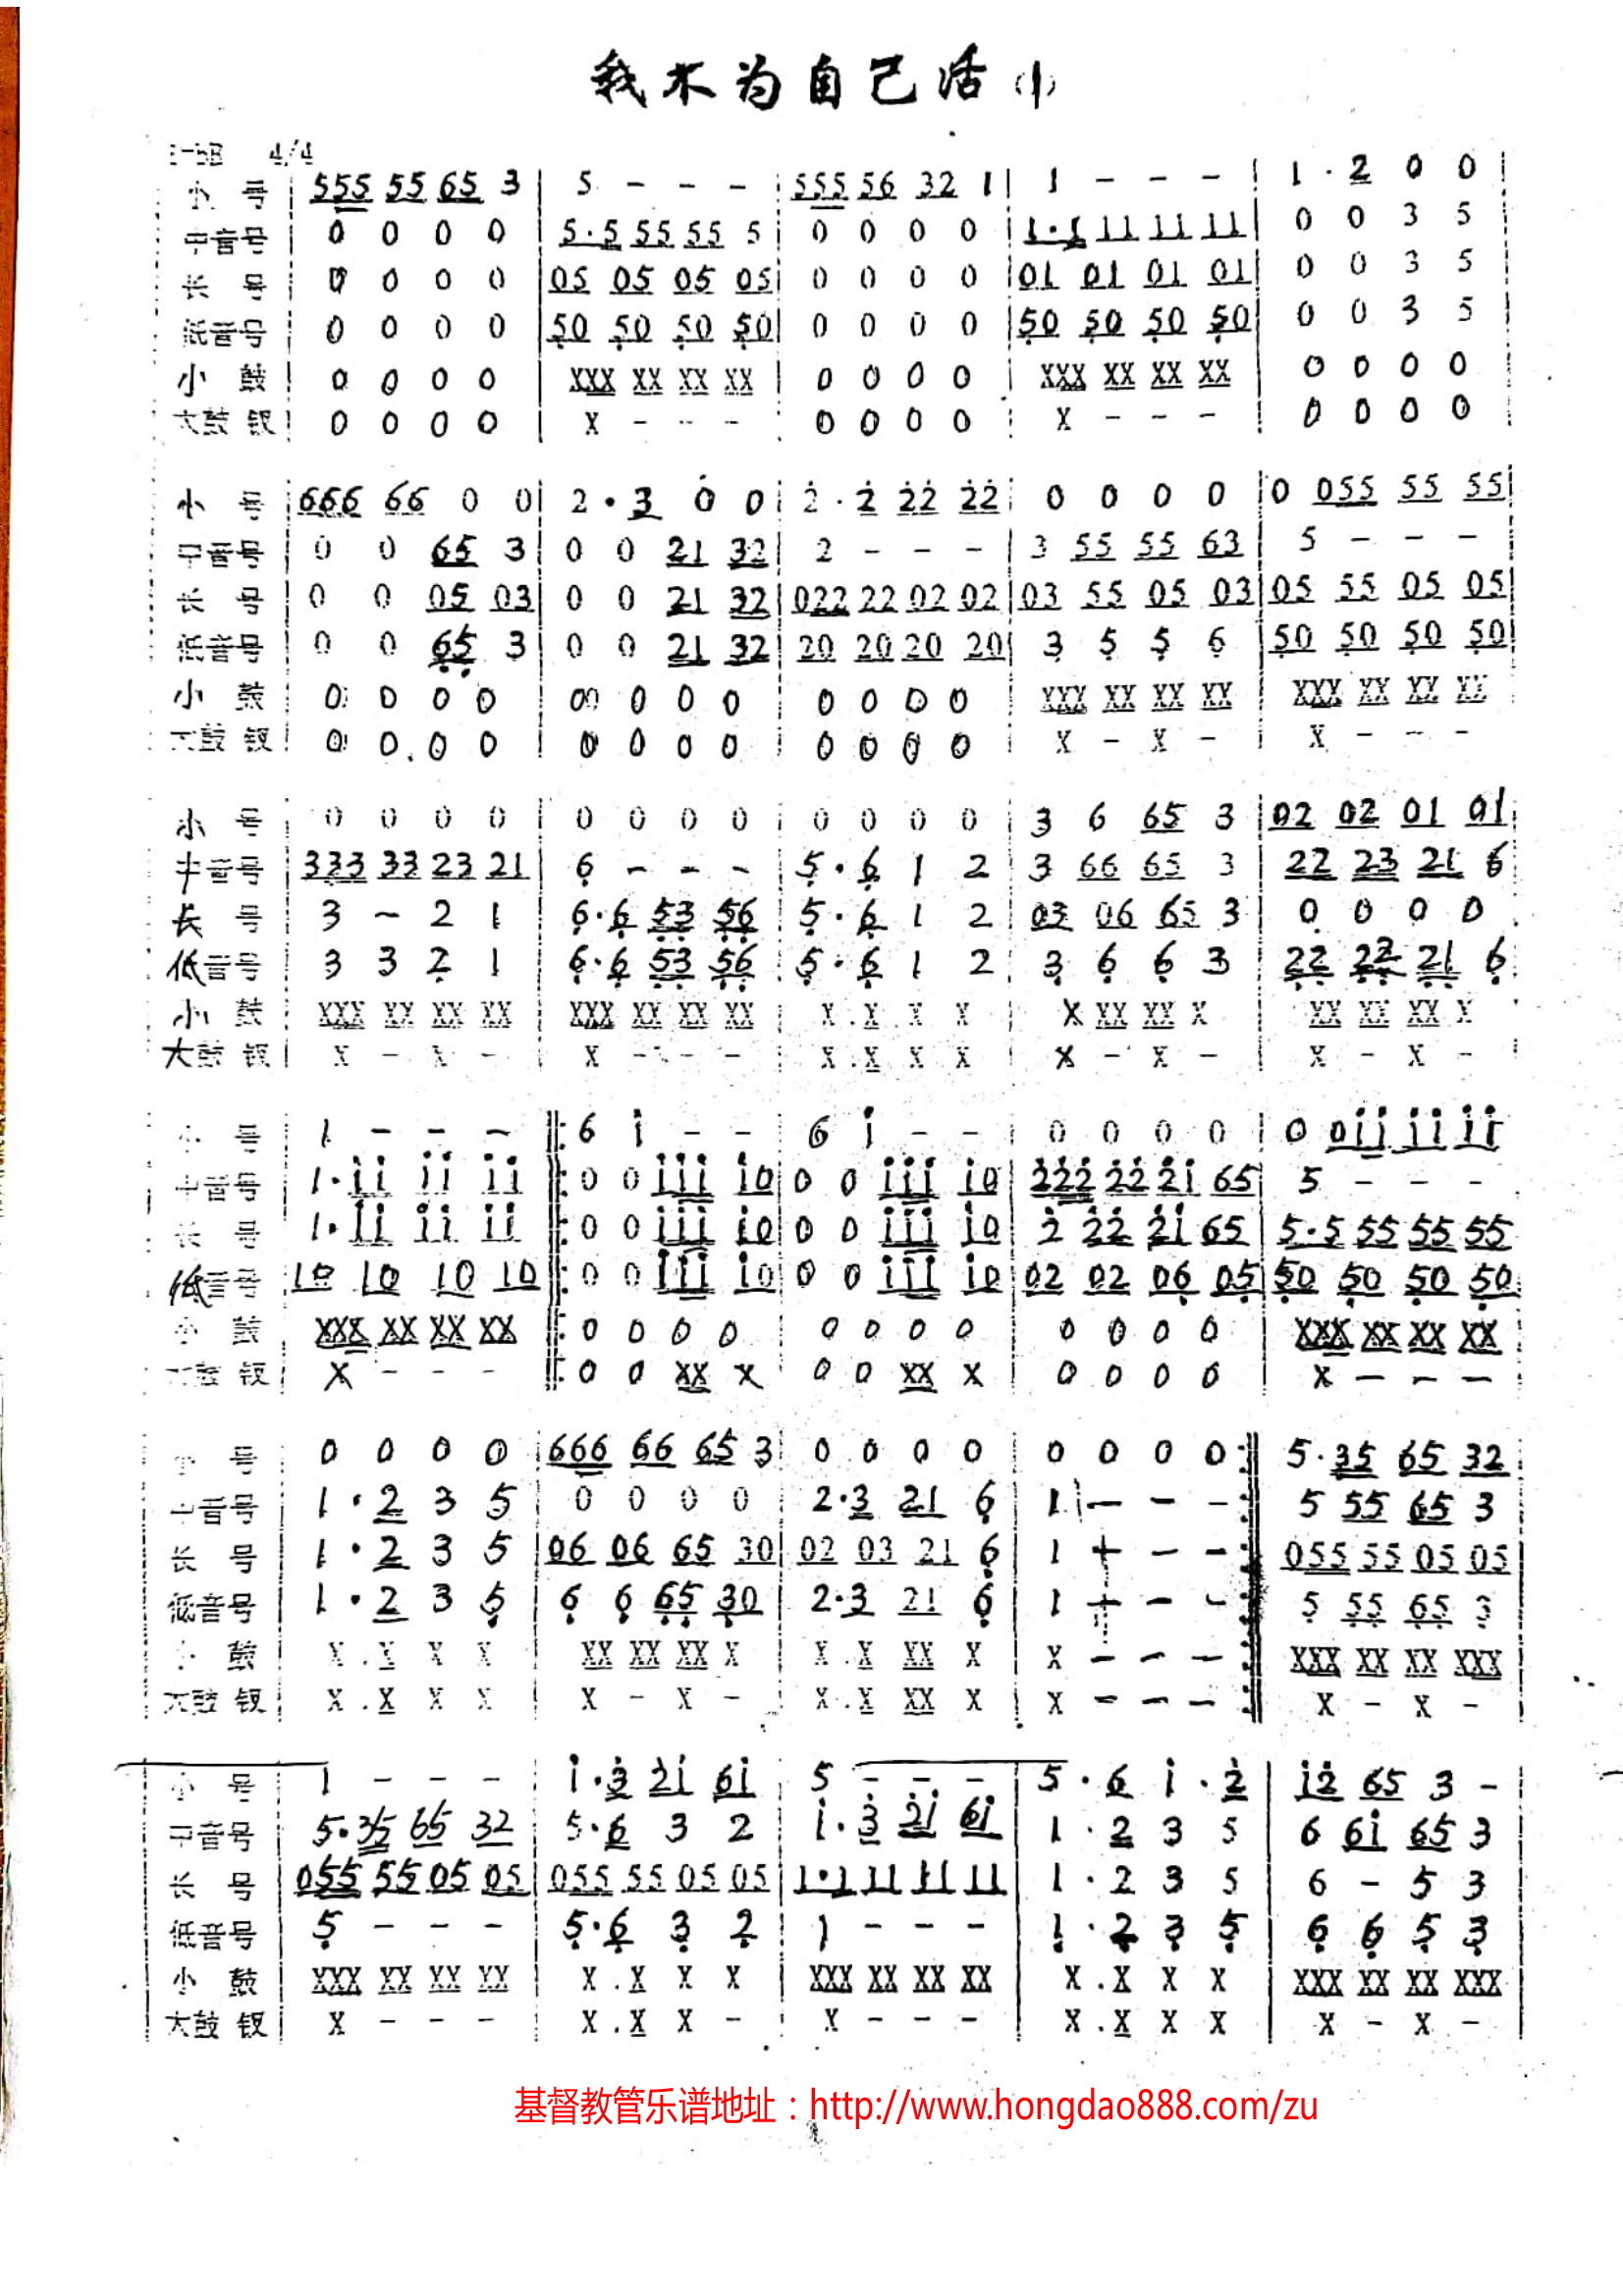 我不为自己活(1)
4/4
小号 555 55 65 3 | 5 - - - | 555 56 32 1 | 1 - - - | 1 · 2 0 0
中音号 0 0 0 0 | 5·5 55 55 5 | 0 0 0 0 | 1·1 11 11 11 | 0 0 3 5
长号 0 0 0 0 | 05 05 05 05 | 0 0 0 0 | 01 01 01 01 | 0 0 3 5
低音号 0 0 0 0 | 50 50 50 50 | 0 0 0 0 | 50 50 50 50 | 0 0 3 5
小鼓 0 0 0 0 | XXX XX XX XX | 0 0 0 0 | XXX XX XX XX | 0 0 0 0
大鼓钗 0 0 0 0 | X - - - | 0 0 0 0 | X - - - | 0 0 0 0
小号 666 66 0 0 | 2 · 3 0 0 | 2 · 2 22 22 | 0 0 0 0 | 0 055 55 55
中音号 0 0 65 3 | 0 0 21 32 | 2 - - - | 3 55 55 63 | 5 - - -
长号 0 0 05 03 | 0 0 21 32 | 022 22 02 02 | 03 55 05 03 | 05 55 05 05
低音号 0 0 65 3 | 0 0 21 32 | 20 20 20 20 | 3 5 5 6 | 50 50 50 50
小鼓 0 0 0 0 | 0 0 0 0 | 0 0 0 0 | XXX XX XX XX | XXX XX XX XX
大鼓钗 0 0 0 0 | 0 0 0 0 | 0 0 0 0 | X - X - | X - - -
小号 0 0 0 0 | 0 0 0 0 | 0 0 0 0 | 3 6 65 3 | 02 02 01 01
中音号 333 33 23 21 | 6 - - - | 5·6 1 2 | 3 66 65 3 | 22 23 21 6
长号 3 - 2 1 | 6·6 53 56 | 5·6 1 2 | 03 06 65 3 | 0 0 0 0
低音号 3 3 2 1 | 6·6 53 56 | 5·6 1 2 | 3 6 6 3 | 22 23 21 6
小鼓 XXX XX XX XX | XXX XX XX XX | X . X X X | X XX XX X | XX XX XX X
大鼓钗 X - X - | X - - - | X . X X X | X - X - | X - X -
小号 1 - - - |: 6 i - - | 6 i - - | 0 0 0 0 | 0 0ii ii ii
中音号 1·ii ii ii |: 0 0 iii i0 | 0 0 iii i0 | 222 22 2i 65 | 5 - - -
长号 1·ii ii ii |: 0 0 iii i0 | 0 0 iii i0 | 2 22 2i 65 | 5·5 55 55 55
低音号 10 10 10 10 |: 0 0 iii i0 | 0 0 iii i0 | 02 02 06 05 | 50 50 50 50
小鼓 XXX XX XX XX |: 0 0 0 0 | 0 0 0 0 | 0 0 0 0 | XXX XX XX XX
大鼓钗 X - - - |: 0 0 XX X | 0 0 XX X | 0 0 0 0 | X - - -
小号 0 0 0 0 | 666 66 65 3 | 0 0 0 0 | 0 0 0 0 :| 5·35 65 32
中音号 1 · 2 3 5 | 0 0 0 0 | 2·3 21 6 | 1 - - - :| 5 55 65 3
长号 1 · 2 3 5 | 06 06 65 30 | 02 03 21 6 | 1 - - - :| 055 55 05 05
低音号 1 · 2 3 5 | 6 6 65 30 | 2·3 21 6 | 1 - - - :| 5 55 65 3
小鼓 X . X X X | XX XX XX X | X . X XX X | X - - - :| XXX XX XX XXX
大鼓钗 X . X X X | X - X - | X . X XX X | X - - - :| X - X -
小号 1 - - - | i·3 2i 6i | 5 - - - | 5 · 6 i · 2 | i2 65 3 -
中音号 5·35 65 32 | 5·6 3 2 | i·3 2i 6i | 1 · 2 3 5 | 6 6i 65 3
长号 055 55 05 05 | 055 55 05 05 | 1·1 11 11 11 | 1 · 2 3 5 | 6 - 5 3
低音号 5 - - - | 5·6 3 2 | 1 - - - | 1 · 2 3 5 | 6 6 5 3
小鼓 XXX XX XX XX | X . X X X | XXX XX XX XX | X . X X X | XXX XX XX XXX
大鼓钗 X - - - | X . X X - | X - - - | X . X X X | X - X -
基督教管乐谱地址：http://www.hongdao888.com/zu